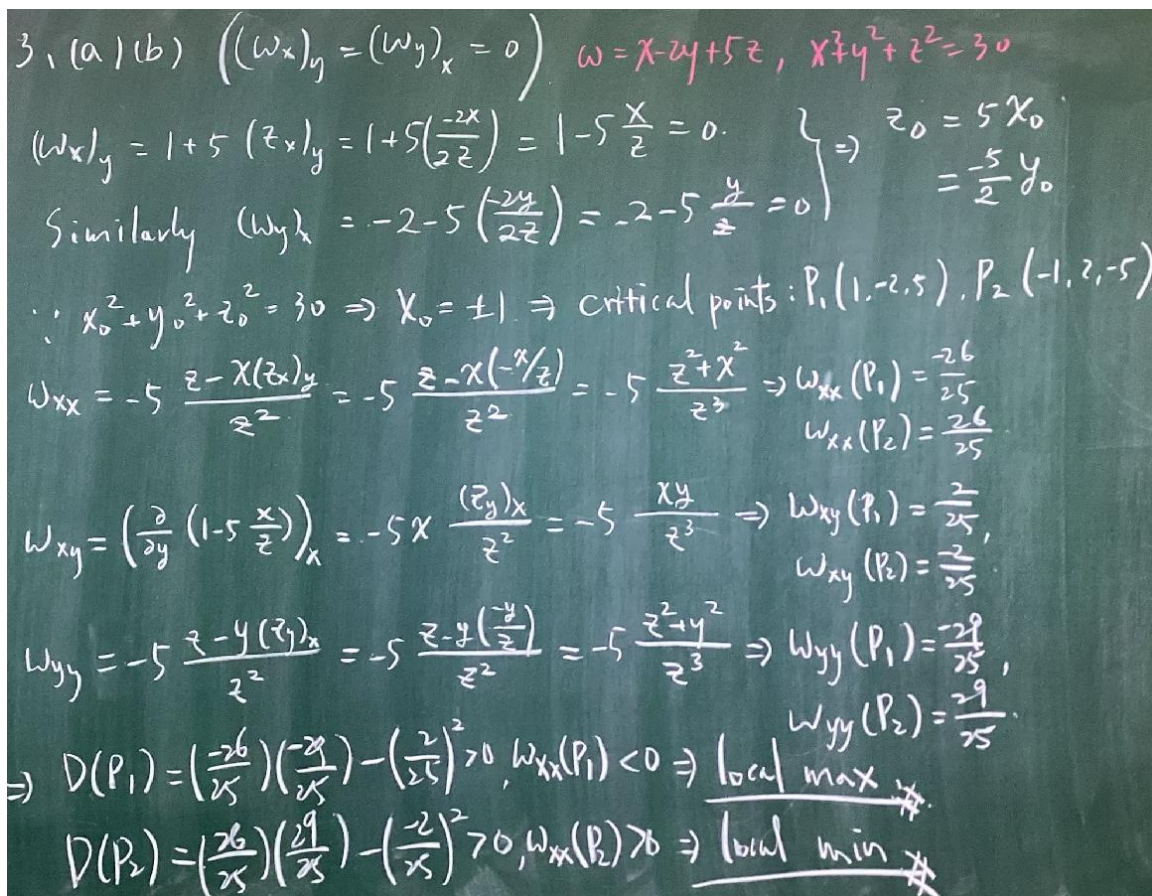 3. (a)(b) ((ωx)y = (ωy)x = 0) ω = x-2y+5z, x²+y²+z²=30
(ωx)y = 1+5 (zx)y = 1+5(-2x/2z) = 1-5 x/z = 0. } ⇒ z₀ = 5x₀
= -5/2 y₀
Similarly (ωy)x = -2-5 (-2y/2z) = -2-5 y/z = 0
∵ x₀²+y₀²+z₀² = 30 ⇒ x₀ = ±1 ⇒ critical points: P₁(1,-2,5), P₂(-1,2,-5)
ωxx = -5 (z-x(zx)y)/z² = -5 (z-x(-x/z))/z² = -5 (z²+x²)/z³ ⇒ ωxx(P₁) = -26/25
ωxx(P₂) = 26/25
ωxy = (∂/∂y (1-5 x/z))x = -5x (zy)x/z² = -5 xy/z³ ⇒ ωxy(P₁) = 2/25,
ωxy(P₂) = -2/25
ωyy = -5 (z-y(zy)x)/z² = -5 (z-y(-y/z))/z² = -5 (z²+y²)/z³ ⇒ ωyy(P₁) = -29/25,
ωyy(P₂) = 29/25.
⇒ D(P₁) = (-26/25)(-29/25) - (2/25)² > 0, ωxx(P₁) < 0 ⇒ local max #
D(P₂) = (26/25)(29/25) - (-2/25)² > 0, ωxx(P₂) > 0 ⇒ local min #